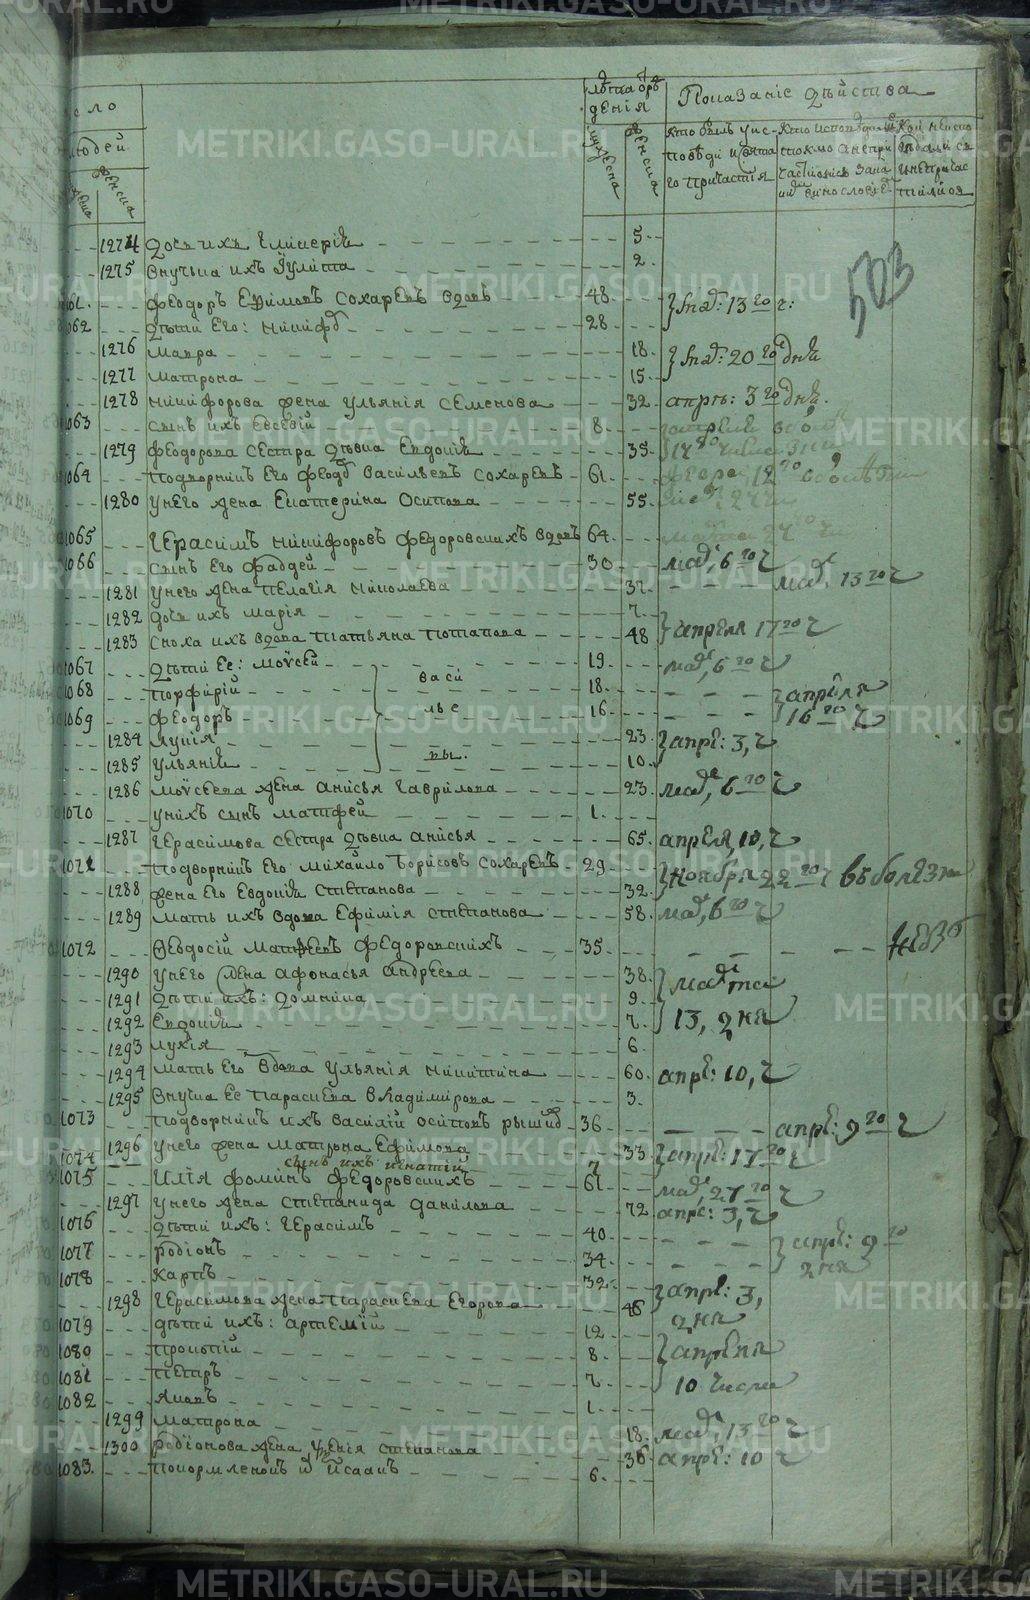 METRIKI.GASO-URAL.RU
ло
людей
жена
женска
Лѣта
дѣнія
мужеска
женска
Показаніе дѣйства
Кто былъ у ис-
повѣди и свята
го причастія
Кто исповѣдался
токмо а не при
частились и за
Кои не испо
вѣдались
и не причас
тились
503
1274 дочь ихъ Гликерія 5
1275 внучька ихъ Iулита 2
1061 Феодоръ Ефимовъ Сохаревъ вдовъ 48 13 го ч:
1062 дѣти его: Никифоръ 28
1276 Мавра 18 20 го дня
1277 Матрона 15
1278 Никифорова жена Ульянія Семенова 32 апрѣ: 3 го дня
1063 сынъ ихъ Евсевій 8
1279 Феодорова сестра дѣвка Евдокія 35
1064 Подворникъ его Феодоръ Васильевъ Сохаревъ 61
1280 у него жена Екатерина Осипова 55
1065 Герасимъ Никифоровъ Федоровскихъ вдовъ 64
1066 сынъ его Фаддей 30 маія 6 го ч
1281 у него жена Пелагія Николаева 37 маія 13 го ч
1282 дочь ихъ Марія 7 апреля 17 го ч
1283 сноха ихъ вдова Татьяна Потапова 48
1067 дѣти ее: Моѵсей 19 маія 6 го ч
1068 Порфирій 18 апреля
1069 Феодоръ 16 16 го ч
васи
лье
вы.
1284 Лукія 23 апре: 3, ч
1285 Ульянія 10
1286 Моѵсеева жена Анисья Гаврилова 23 маія, 6 го ч
1070 у нихъ сынъ Матфей 1
1287 Герасимова сестра дѣвка Анисья 65 апреля 10, ч
1071 Подворникъ его Михайло Борисовъ Сохаревъ 29 ноября 22 го ч въ болезни
1288 жена его Евдокія Степанова 32
1289 мать ихъ вдова Ефимія Степанова 58 маія 6 го ч
1072 Феодосій Матфеевъ Федоровскихъ 35
1290 у него жена Афонасья Андреева 38 маія
1291 дѣти ихъ: Домника 9
1292 Евдокія 7 13, дня
1293 Лукія 6
1294 мать его вдова Ульянія Никитина 60 апре: 10, ч
1295 внучка ее Парасксева Владимирова 3
1073 Подворникъ ихъ Василій Осиповъ Рышков 36 апре: 9 го ч
1296 у него жена Матрона Ефимова 33 апре: 17 го ч
1074 сынъ ихъ Игнатій 7
1075 Илія Фоминъ Федоровскихъ 67 маія, 27 го ч
1297 у него жена Степанида Данилова 72 апре: 3, ч
1076 дѣти ихъ: Герасимъ 40 апре: 9 го
1077 Родіонъ 34 дня
1078 Карпъ 32
1298 Герасимова жена Парасксева Егорова 46 апре: 3, дня
1079 дѣти ихъ: Артемій 12
1080 Прокопій 8 апреля
1081 Петръ 7 10 числа
1082 Яковъ 1
1299 Матрона 18 маія, 13 го ч
1300 Родіонова жена Степанова 36 апре: 10 ч
1083 Покормленокъ Исаакъ 6